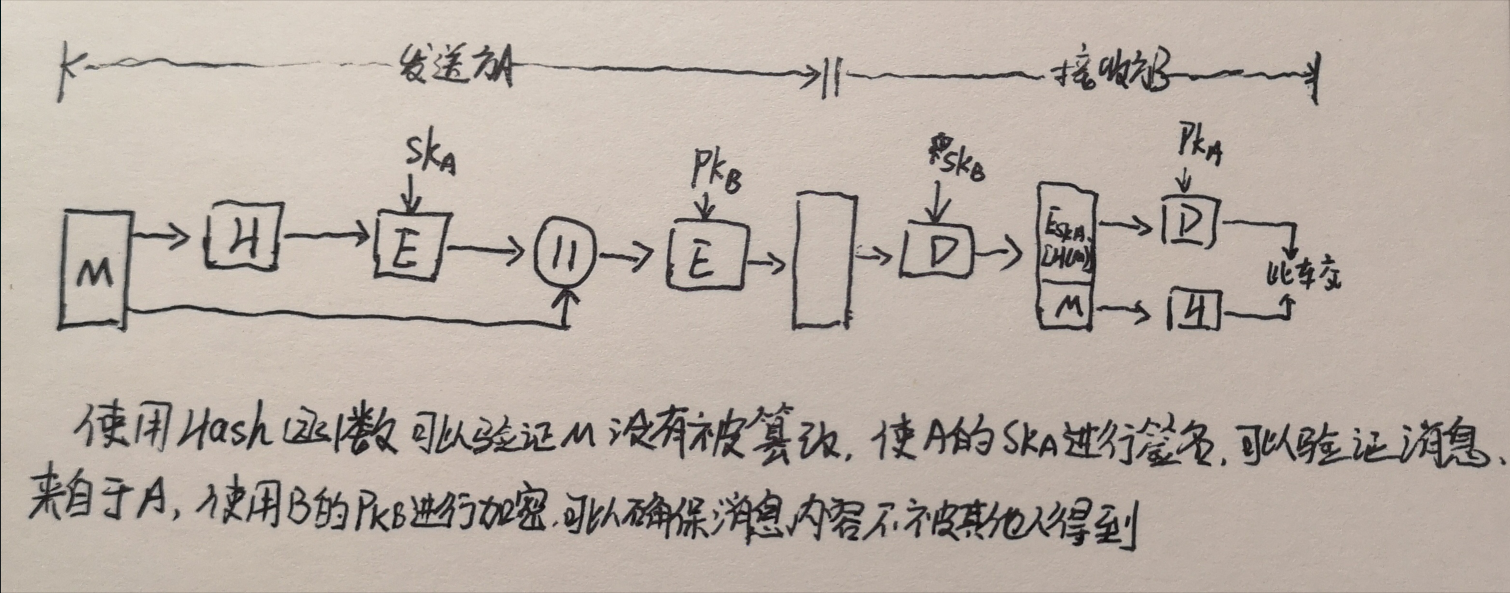 发送方A 接收方B
SKA PKB SKB PKA
M H E || E D ESKA[H(M)] D 比较
M H
使用Hash函数可以验证M没有被篡改，使A的SKA进行签名，可以验证消息、
来自于A，使用B的PKB进行加密，可以确保消息内容不被其他人得到